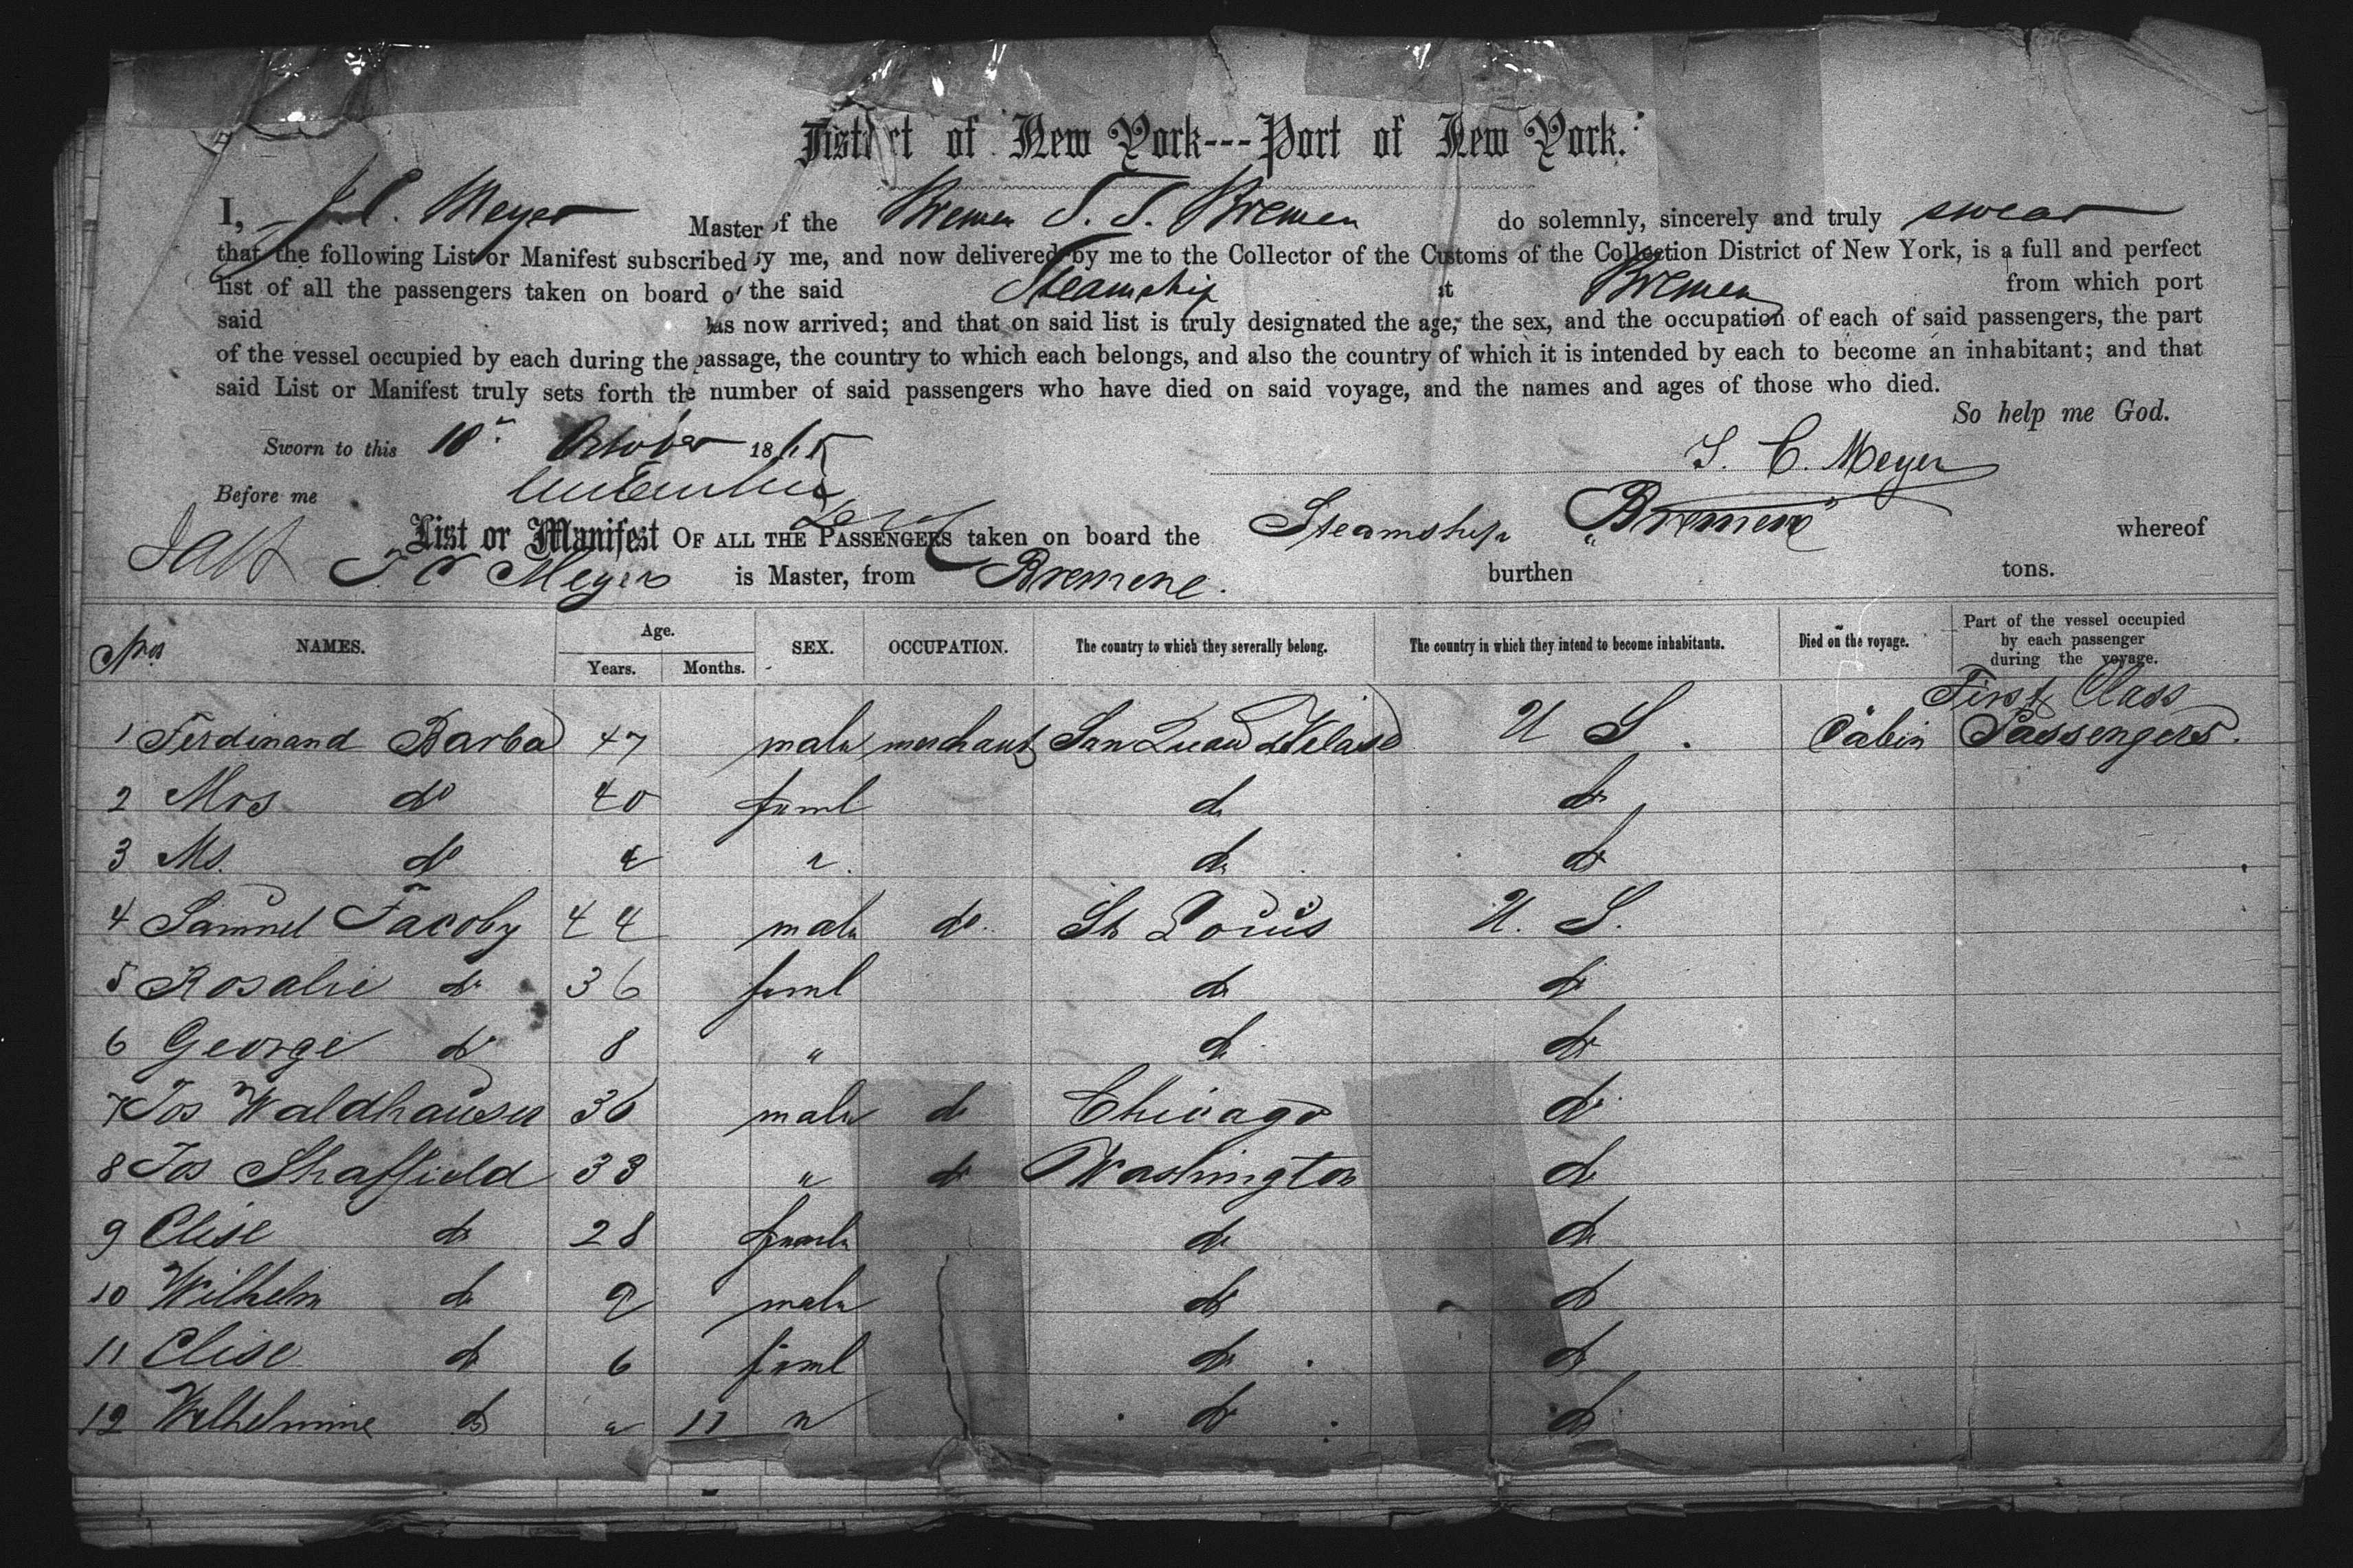 District of New York---Port of New York.
I, J. C. Meyer Master of the Bremen S. S. Bremen do solemnly, sincerely and truly swear
that the following List or Manifest subscribed by me, and now delivered by me to the Collector of the Customs of the Collection District of New York, is a full and perfect
list of all the passengers taken on board of the said Steamship at Bremen from which port
said has now arrived; and that on said list is truly designated the age, the sex, and the occupation of each of said passengers, the part
of the vessel occupied by each during the passage, the country to which each belongs, and also the country of which it is intended by each to become an inhabitant; and that
said List or Manifest truly sets forth the number of said passengers who have died on said voyage, and the names and ages of those who died.
So help me God.
Sworn to this 10" October 1865 J. C. Meyer
Before me
List or Manifest OF ALL THE PASSENGERS taken on board the Steamship "Bremen" whereof
J. C. Meyer is Master, from Bremene. burthen tons.
Nos NAMES. Age. Years. Months. SEX. OCCUPATION. The country to which they severally belong. The country in which they intend to become inhabitants. Died on the voyage. Part of the vessel occupied by each passenger during the voyage.
First Class
1 Ferdinand Barba 47 male merchant San U S. Cabin Passengers.
2 Mrs do 40 feml do do
3 Ms. do " " do do
4 Samuel Jacoby 44 male do. St Louis U. S.
5 Rosalie do 36 feml do do
6 George do 8 " do do
7 Jos Waldhauser 36 male do Chicago do
8 Jos Shaffield 33 " do Washington do
9 Elise do 28 female do do
10 Wilhelm do 9 male do do
11 Elise do 6 feml do do
12 Wilhelmine do " 11 " do do